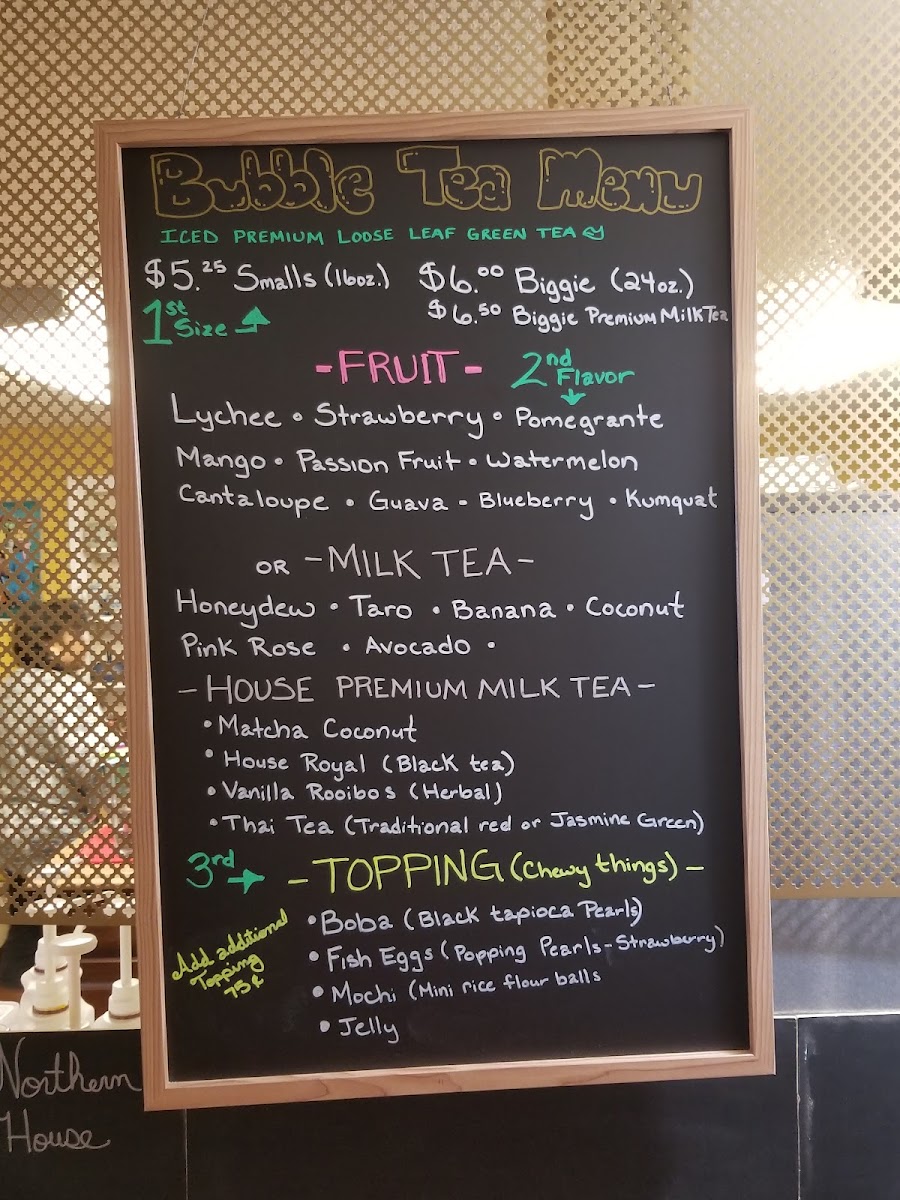 Bubble Tea Menu
ICED PREMIUM LOOSE LEAF GREEN TEA
$5.25 Smalls (16oz.) $6.00 Biggie (24oz.)
1st Size $6.50 Biggie Premium Milk Tea
-FRUIT- 2nd Flavor
Lychee • Strawberry • Pomegrante
Mango • Passion Fruit • Watermelon
Cantaloupe • Guava - Blueberry • Kumquat
OR -MILK TEA-
Honeydew • Taro • Banana • Coconut
Pink Rose • Avocado •
- HOUSE PREMIUM MILK TEA -
• Matcha Coconut
• House Royal (Black tea)
• Vanilla Rooibos (Herbal)
• Thai Tea (Traditional red or Jasmine Green)
3rd → - TOPPING (Chewy things) -
• Boba (Black tapioca Pearls)
• Fish Eggs (Popping Pearls - Strawberry)
• Mochi (Mini rice flour balls
• Jelly
Add additional
Topping
75¢
Northern
House